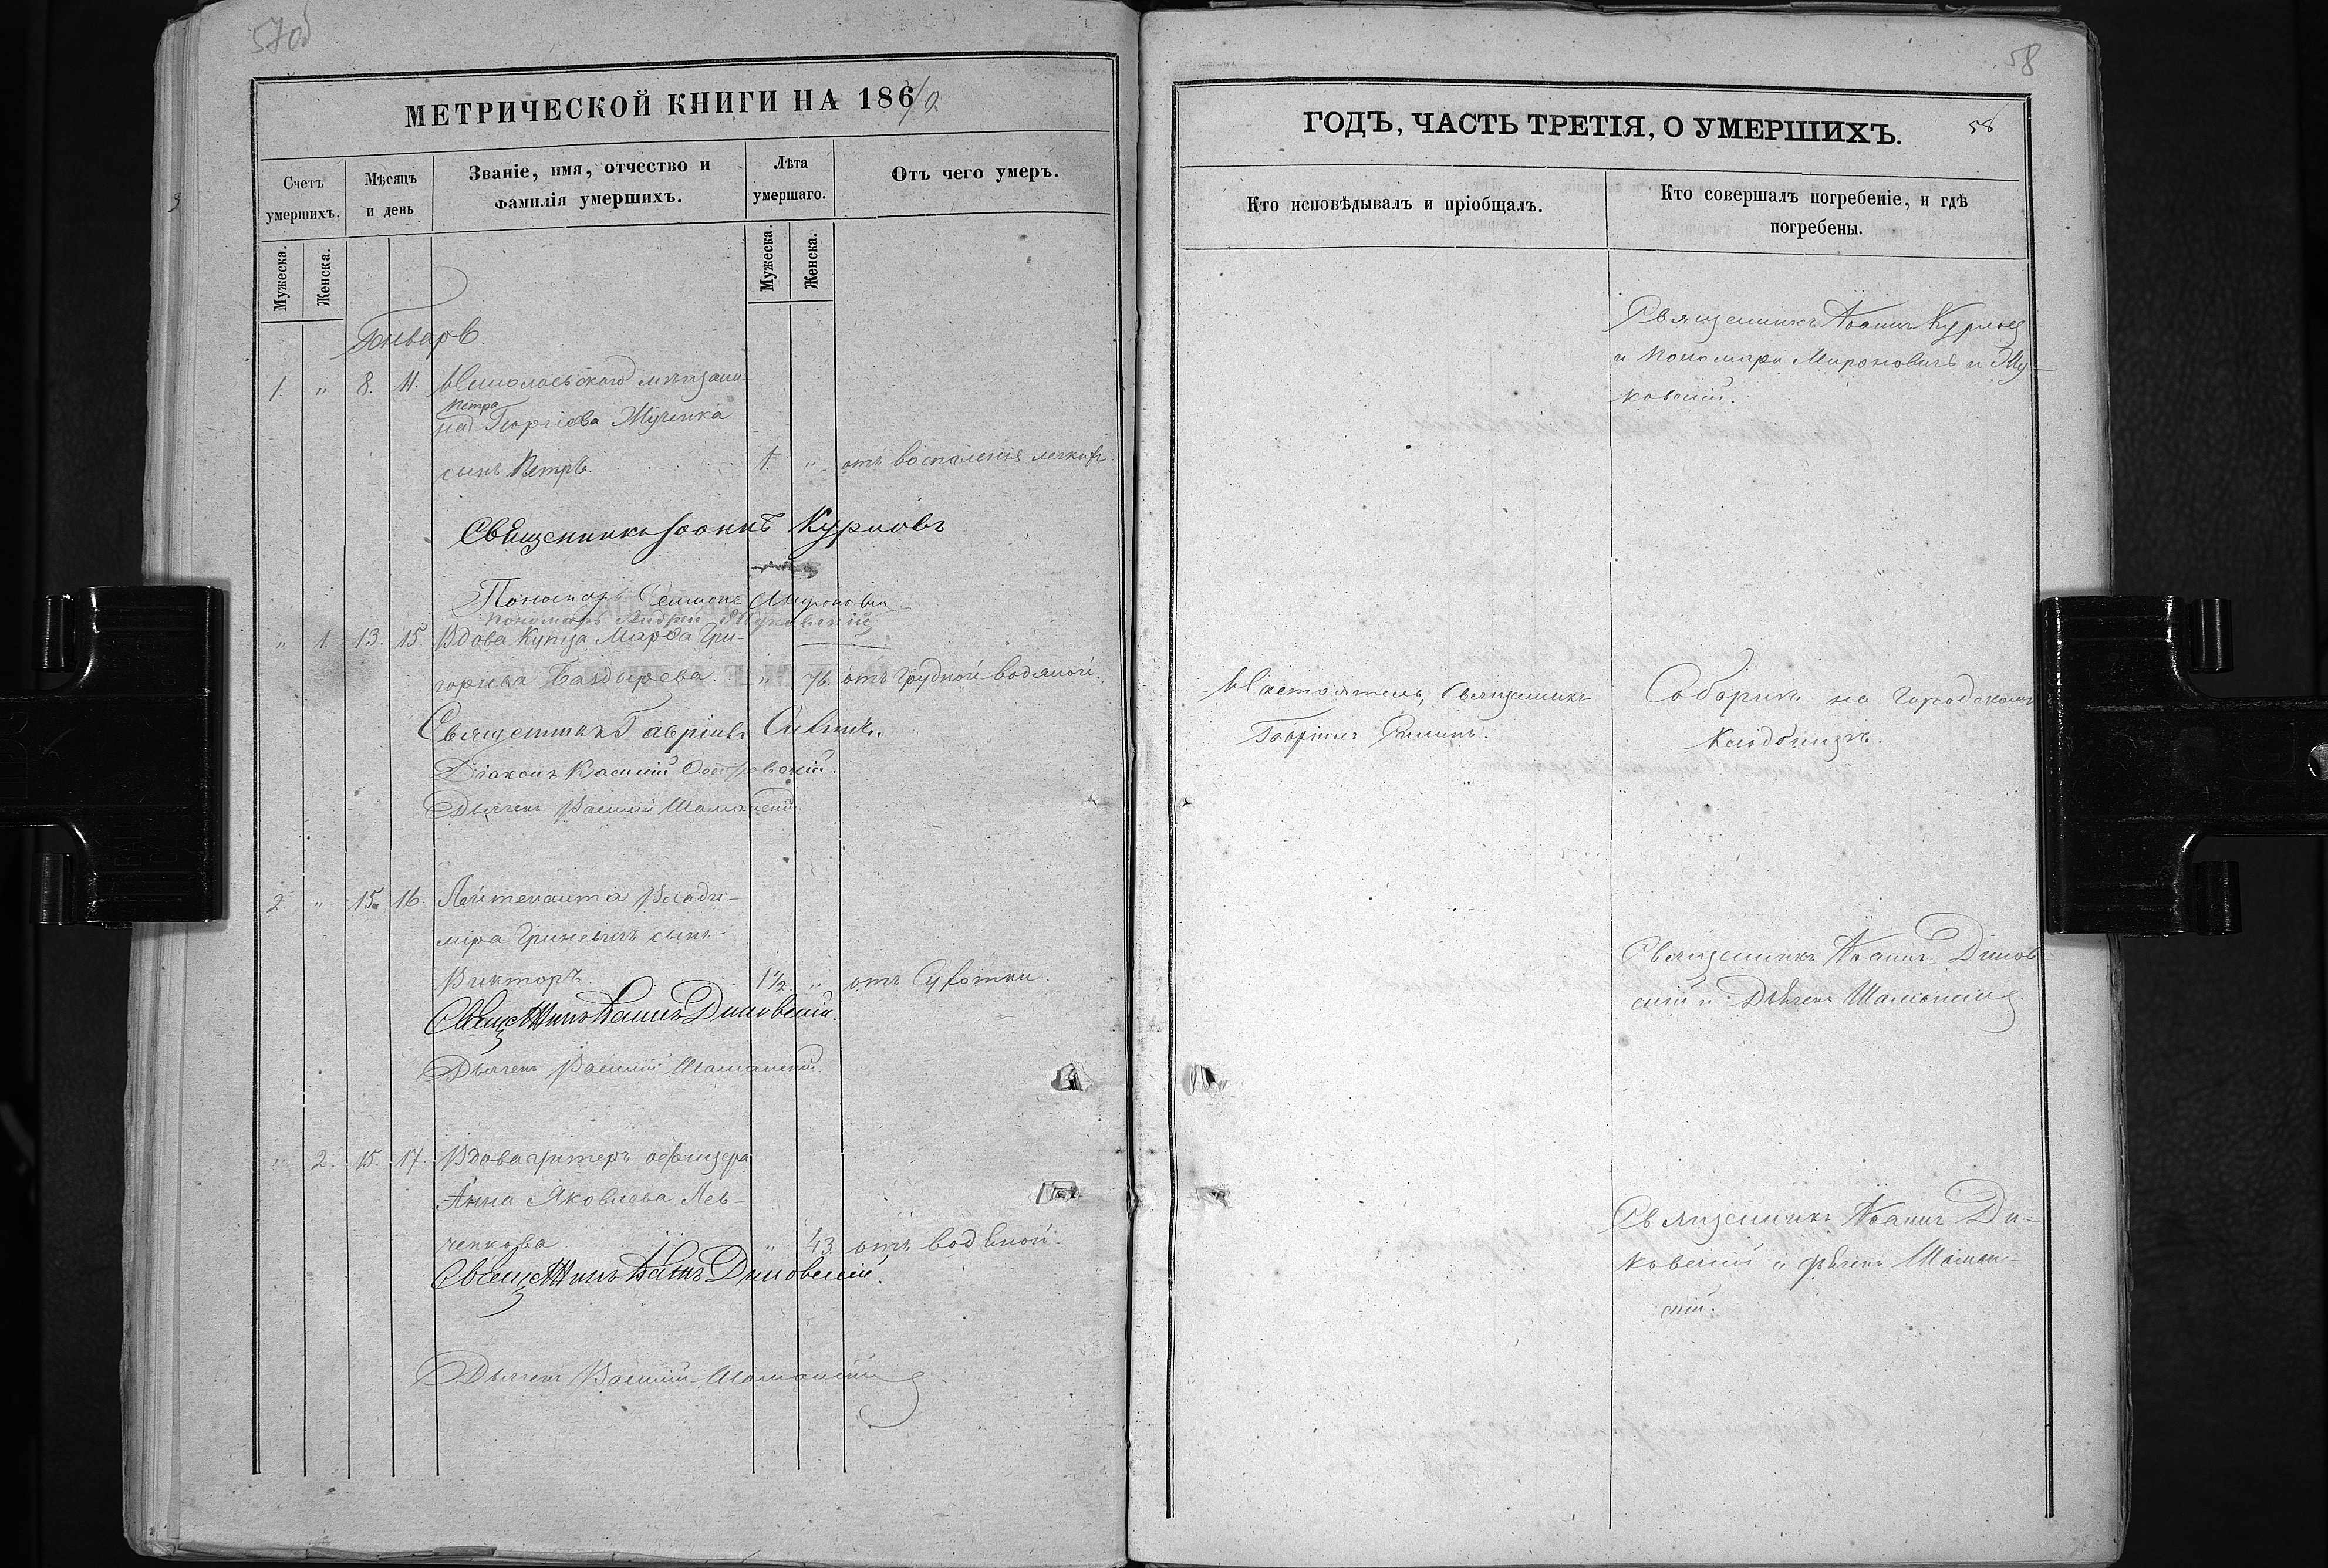 57об
МЕТРИЧЕСКОЙ КНИГИ НА 186
Счетъ умершихъ.
Мѣсяцъ и день
Званіе, имя, отчество и фамилія умершихъ.
Лѣта умершаго.
Отъ чего умеръ.
Мужеска.
Женска.
Мужеска.
Женска.
Январь.
1. " 8. 11. Николаевскаго мѣщани-
Петра
на Георгіева Мученка
сынъ Петръ. 1. " отъ воспаленія легкихъ
Священникъ Іоаннъ Курловъ
Пономарь Симонъ Мироновичъ
Пономарь Андрей Жуковскій
" 1. 13. 15. Вдова Купца Марфа Гри-
горьева Баздырева. " 76. отъ грудной водяной.
Священникъ Гавріилъ Силинъ.
Діаконъ Василій
Дьячекъ Василій Шаманскій.
2. " 15. 16. Лейтенанта Влади-
міра Гриневичъ сынъ
Викторъ. 1½ " отъ Сухотки.
Священникъ Іоаннъ Диковскій.
Дьячекъ Василій Шаманскій.
" 2. 15. 17. Вдова унтеръ офицера
Анна Яковлева Лев-
ченкова " 43. отъ водяной.
Священникъ Іоаннъ Диковскій.
Дьячекъ Василій Шаманскій
58
ГОДЪ, ЧАСТЬ ТРЕТІЯ, О УМЕРШИХЪ.
58
Кто исповѣдывалъ и пріобщалъ.
Кто совершалъ погребеніе, и гдѣ погребены.
Священникъ Іоаннъ Курловъ
и Пономари Мироновичъ и Жу-
ковскій.
Настоятель, Священникъ
Гавріилъ Силинъ.
Соборнѣ на Городскомъ
Кладбищѣ.
Священникъ Іоаннъ Диков-
скій и Дьячекъ Шаманскій.
Священникъ Іоаннъ Ди-
ковскій и Дьячекъ Шаман-
скій.